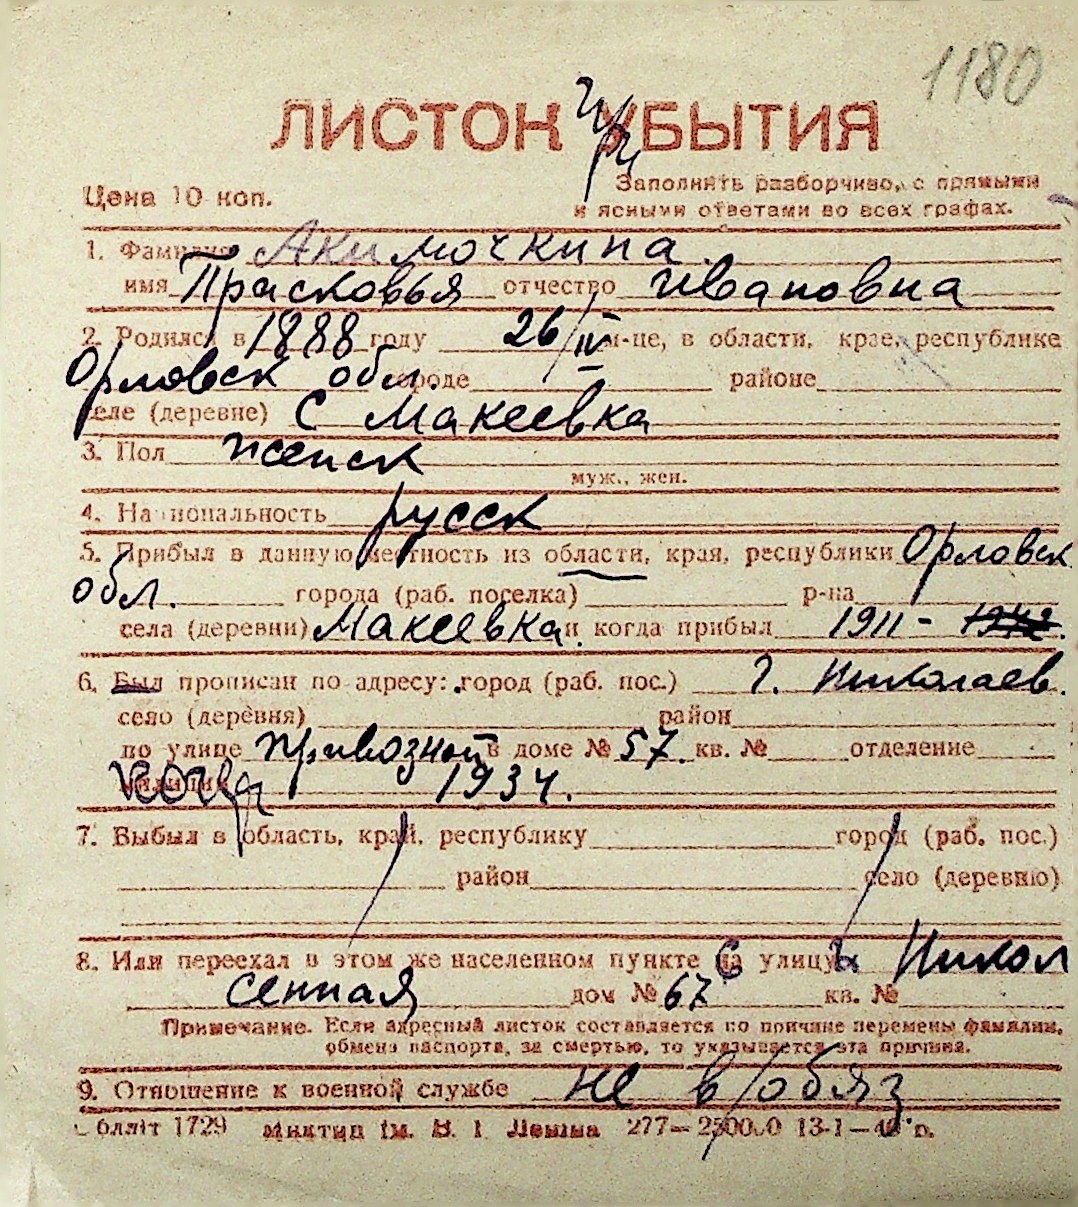 1180
ЛИСТОК УБЫТИЯ
Цена 10 коп.
Заполнять разборчиво, с прямыми
и ясными ответами во всех графах.
1. Фамилия Акимочкина
имя Прасковья отчество Ивановна
2. Родился в 1888 году 26/IV м-це, в области, крае, республике
Орловск обл. городе районе
селе (деревне) С Макеевка
3. Пол женск
муж., жен.
4. Национальность русск
5. Прибыл в данную местность из области, края, республики Орловск
обл. города (раб. поселка) р-на
села (деревни) Макеевка и когда прибыл 1911 -
6. Был прописан по адресу: город (раб. пос.) г. Николаев.
село (деревня) район
по улице Привозной в доме № 57. кв. № отделение
милиции когда 1934.
7. Выбыл в область, край, республику город (раб. пос.)
район село (деревню)
8. Или переехал в этом же населенном пункте на улицу Никол
Сенная дом № 67 кв. №
Примечание. Если адресный листок составляется по причине перемены фамилии,
обмена паспорта, за смертью, то указывается эта причина.
9. Отношение к военной службе не в/обяз
Обллiт 1729 iм. В. I Ленiна 13-1—